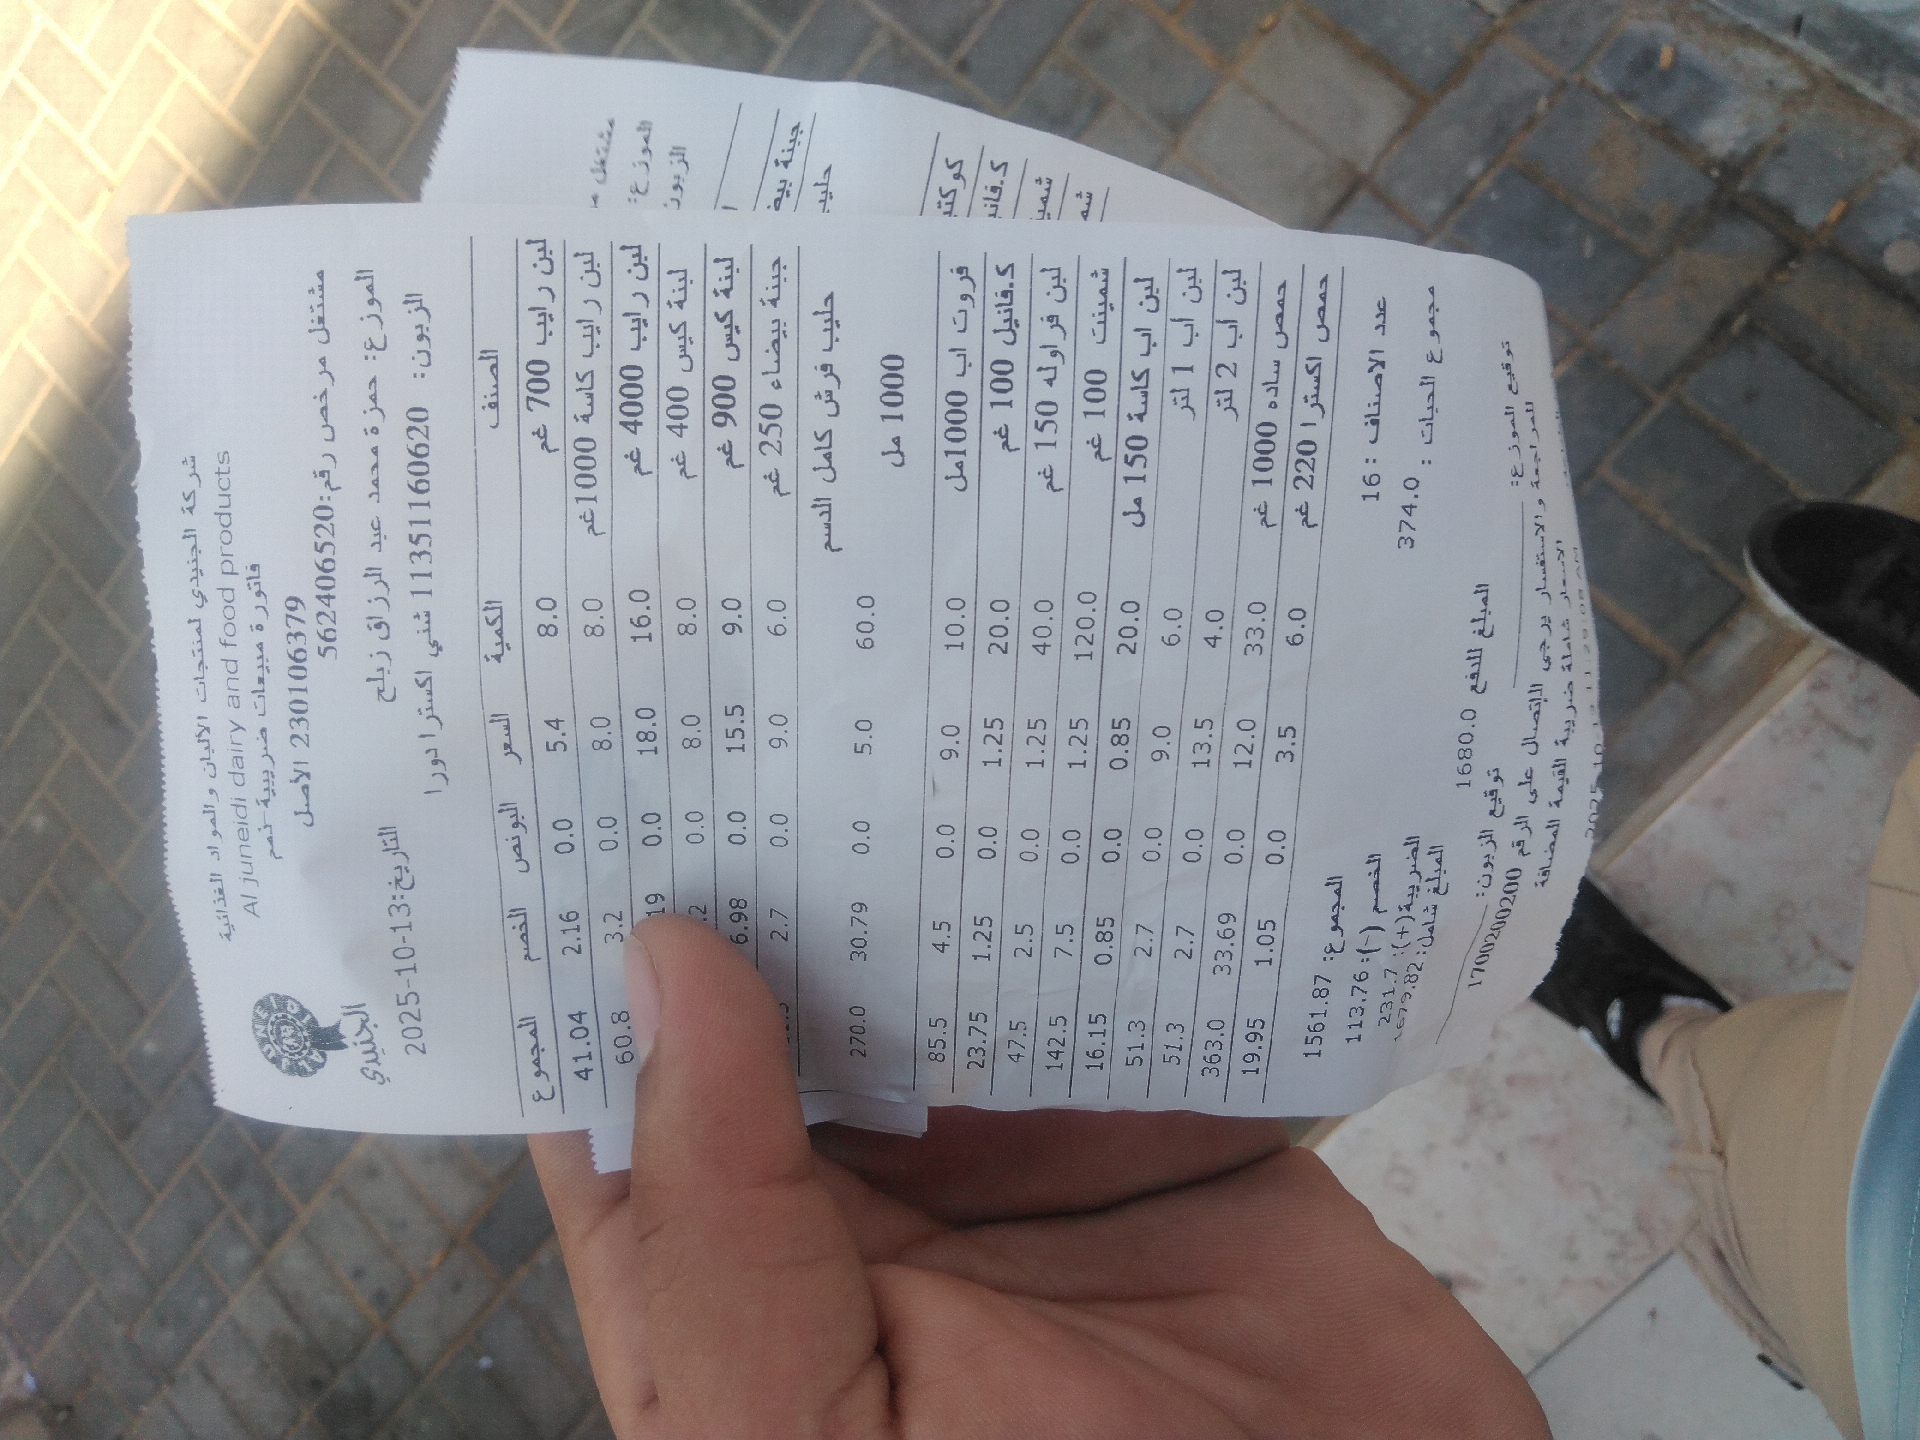 شركة الجنيدي لمنتجات الالبان والمواد الغذائية
Al juneidi dairy and food products
فاتورة مبيعات ضريبية-نهم
230106379 الأصل
مشتغل مرخص رقم:562406520
الجنيدي
الموزع: حمزة محمد عبد الرزاق زبلح
التاريخ:2025-10-13
الزبون: 11351160620 شني اكسترا دورا
الصنف الكمية السعر البونص الخصم المجموع
لبن رايب 700 غم 8.0 5.4 0.0 2.16 41.04
لبن رايب كاسة 1000غم 8.0 8.0 0.0 3.2 60.8
لبن رايب 4000 غم 16.0 18.0 0.0
لبنة كيس 400 غم 8.0 8.0 0.0
لبنة كيس 900 غم 9.0 15.5 0.0 6.98
جبنة بيضاء 250 غم 6.0 9.0 0.0 2.7
حليب فرش كامل الدسم 60.0 5.0 0.0 30.79 270.0
1000 مل
فروت اب 1000مل 10.0 9.0 0.0 4.5 85.5
ك.فانيل 100 غم 20.0 1.25 0.0 1.25 23.75
لبن فراوله 150 غم 40.0 1.25 0.0 2.5 47.5
شمينت 100 غم 120.0 1.25 0.0 7.5 142.5
لبن اب كاسة 150 مل 20.0 0.85 0.0 0.85 16.15
لبن اب 1 لتر 6.0 9.0 0.0 2.7 51.3
لبن اب 2 لتر 4.0 13.5 0.0 2.7 51.3
حمص ساده 1000 غم 33.0 12.0 0.0 33.69 363.0
حمص اكسترا 220 غم 6.0 3.5 0.0 1.05 19.95
عدد الاصناف : 16 المجموع: 1561.87
مجموع الحبات : 374.0 الخصم (-): 113.76
الضريبة(+): 231.7
المبلغ للدفع 1680.0 المبلغ شامل:
توقيع الموزع: توقيع الزبون:
للمراجعة والاستفسار يرجى الاتصال على الرقم 1700200200
الاسعار شاملة ضريبة القيمة المضافة
مشتغل
الموزع:
الزبون
جبنة
حليب
ك.فانيل